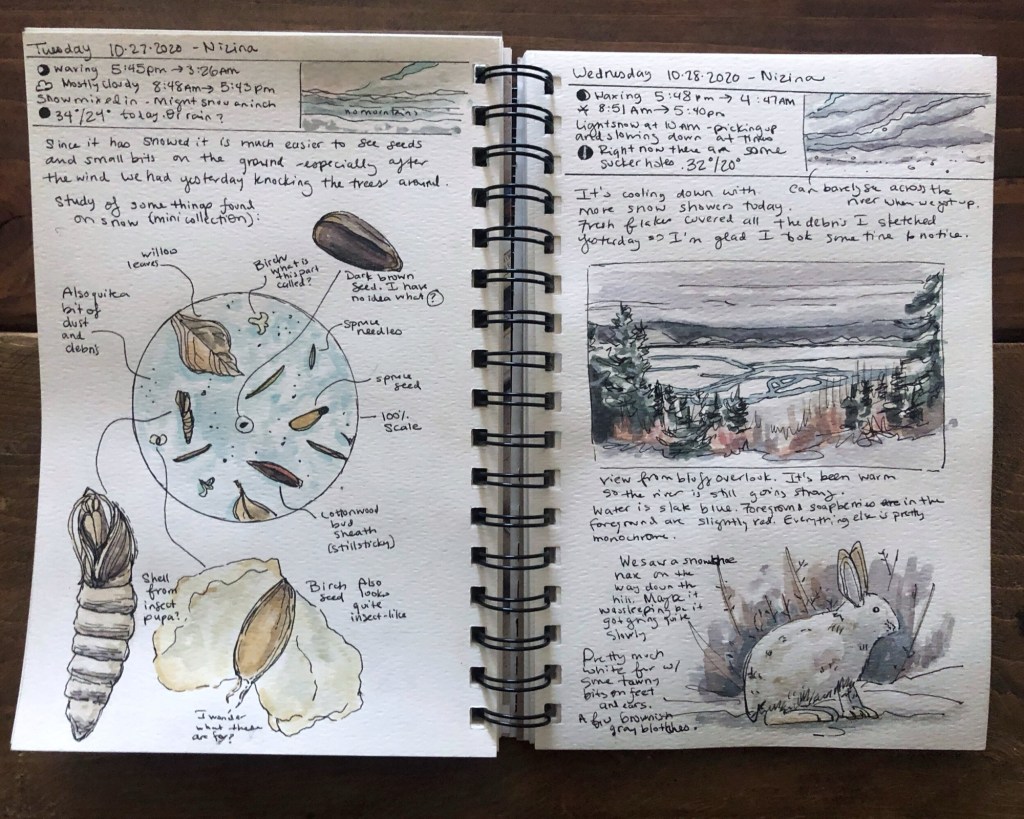 Tuesday 10·27·2020 - Nizina
waxing 5:45pm → 3:26am
Mostly cloudy 8:48am → 5:43pm
Snow mixed in - Might snow an inch
34°/24° today. Or rain?
no mountains
Since it has snowed it is much easier to see seeds
and small bits on the ground - especially after
the wind we had yesterday knocking the trees around.
Study of some things found
on snow (mini collection):
willow
leaves
Birch what is
this part
called?
Dark brown
seed. I have
no idea what ?
Also quite a
bit of
dust
and
debris
spruce
needles
spruce
seed
100%
scale
Cottonwood
bud
sheath
(still sticky)
Shell
from
insect
pupa?
Birch
seed
Also
looks
quite
insect-like
I wonder
what these
are for?
Wednesday 10·28·2020 - Nizina
Waxing 5:48pm → 4:47am
8:51am → 5:40pm
Light snow at 10am - picking up
and slowing down at times
Right now there are some
sucker holes. 32°/20°
Can barely see across the
river when we got up.
It's cooling down with
more snow showers today.
Fresh flakes covered all the debris I sketched
yesterday so I'm glad I took some time to notice.
view from bluff overlook. It's been warm
so the river is still going strong.
Water is slate blue. Foreground soapberries are in the
foreground are slightly red. Everything else is pretty
monochrome.
We saw a snowshoe
hare on the
way down the
hill. Maybe it
was sleeping bc it
got going quite
slowly
Pretty much
white fur w/
some tawny
bits on feet
and ears.
A few brownish
gray blotches.